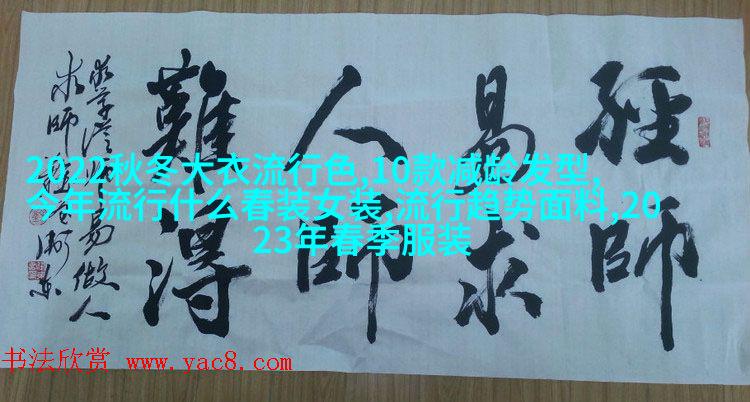 經師
易求
人師
難得
易做人
求師
2022秋冬大衣流行色,10款减龄发型,
今年流行什么春装女装,流行趋势面料,20
23年春季服装
书法欣赏 www.yac8.com